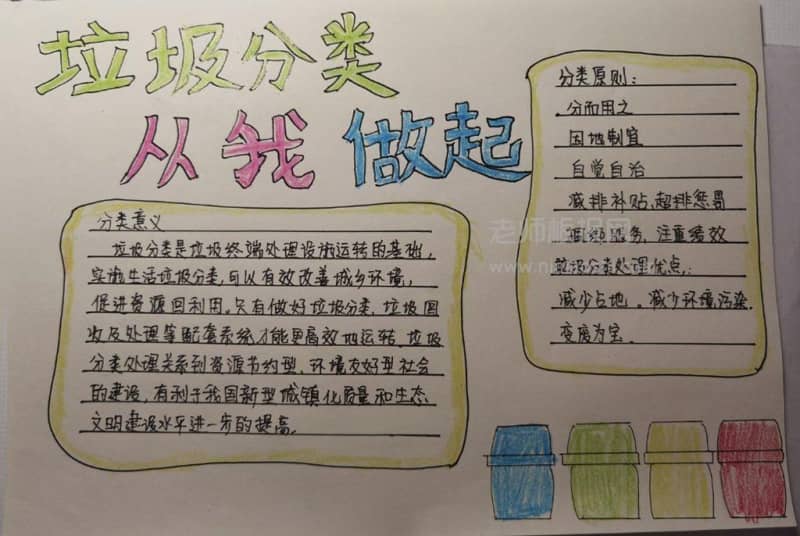 垃圾分类
从我做起
分类意义
垃圾分类是垃圾终端处理设施运转的基础,
实施生活垃圾分类,可以有效改善城乡环境,
促进资源回利用。只有做好垃圾分类,垃圾回
收及处理等配套系统才能更高效地运转.垃圾
分类处理关系到资源节约型.环境友好型社会
的建设,有利于我国新型城镇化质量和生态
文明建设水平进一步的提高.
分类原则:
分而用之
因地制宜
自觉自治
减排补贴,超排惩罚
捆绑服务,注重绩效
垃圾分类处理优点:
减少占地。减少环境污染.
变废为宝.
老师板报网